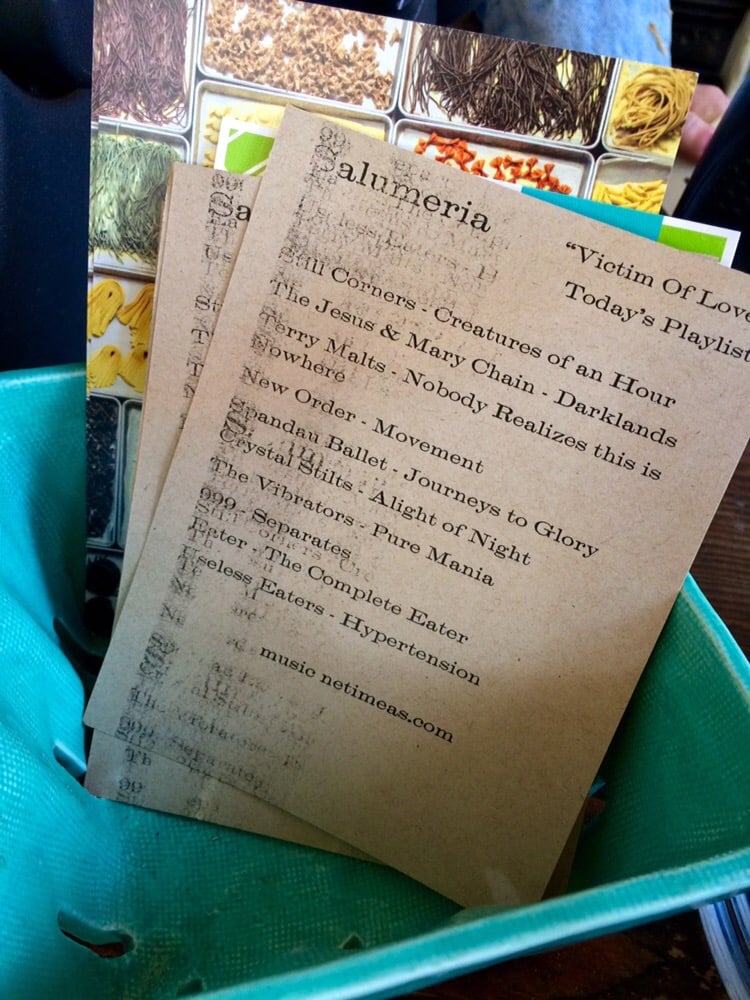 Salumeria
"Victim Of Love
Today's Playlist
Still Corners - Creatures of an Hour
The Jesus & Mary Chain - Darklands
Terry Malts - Nobody Realizes this is
Nowhere
New Order - Movement
Spandau Ballet - Journeys to Glory
Crystal Stilts - Alight of Night
The Vibrators - Pure Mania
999 - Separates
Eater - The Complete Eater
Useless Eaters - Hypertension
music netimeas.com
Sa